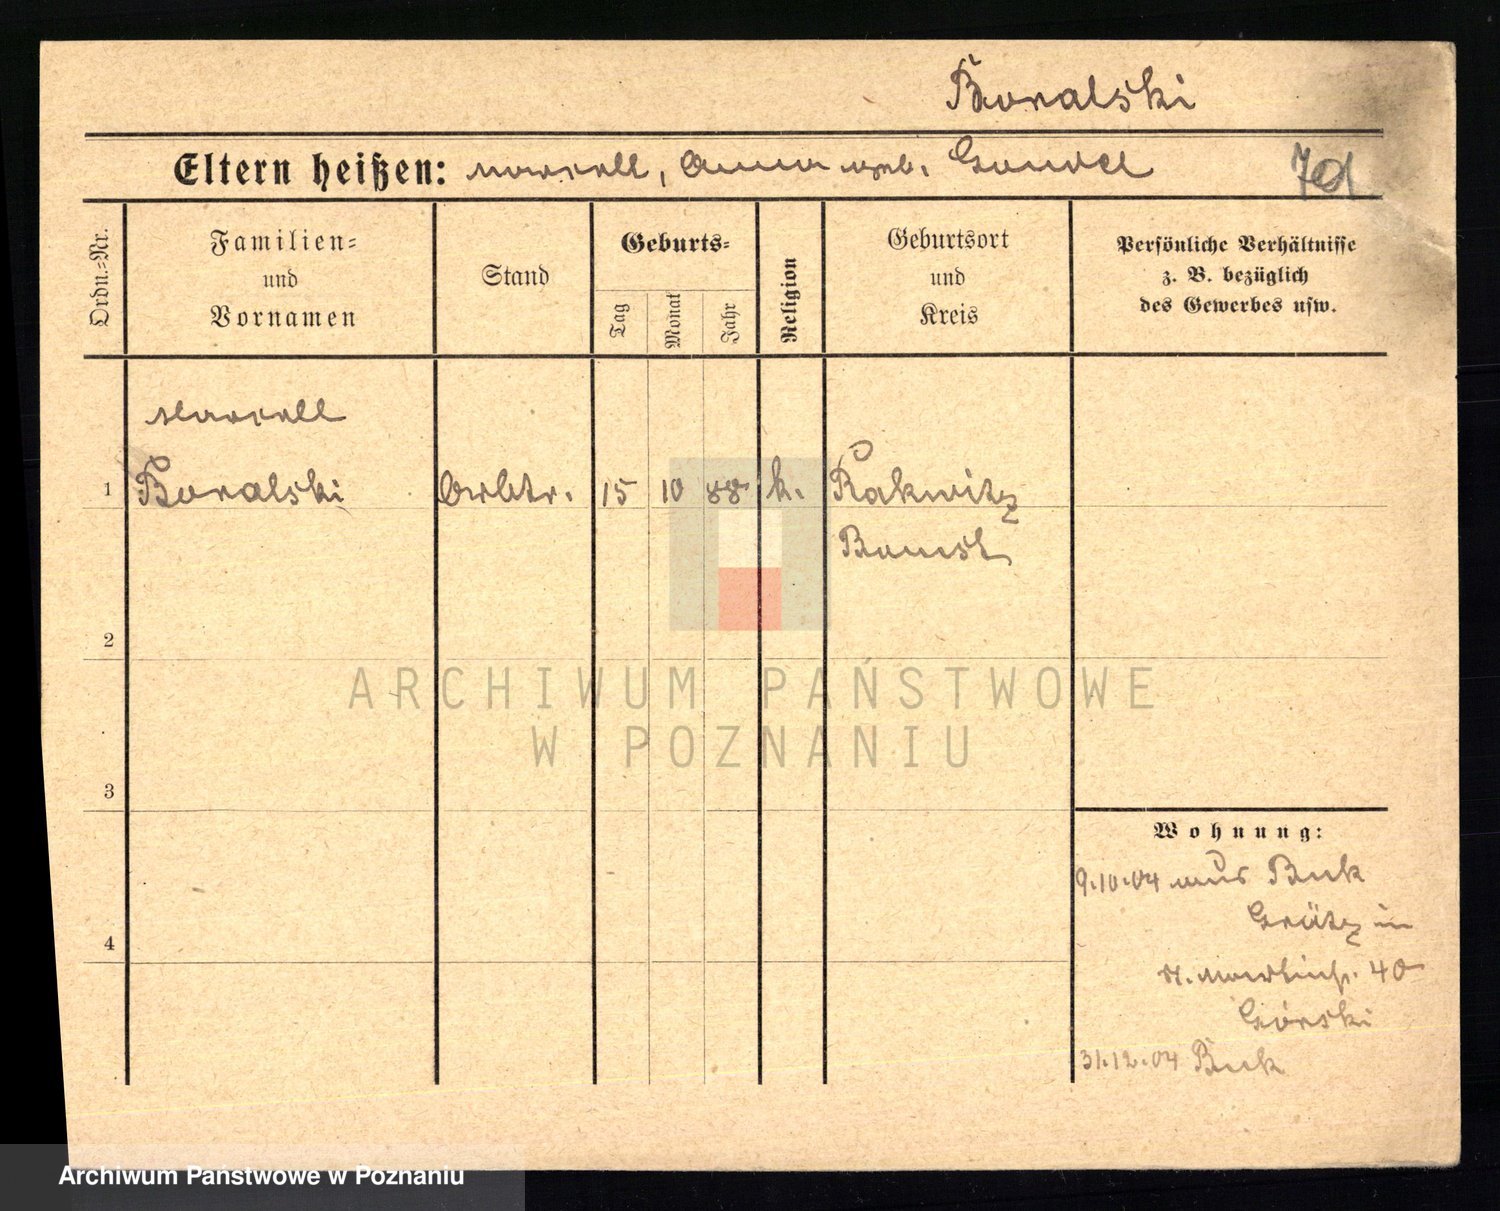 Boralski
Eltern heißen: Marcell, Anna geb.
Ordn.=Nr.
Familien=
und
Vornamen
Stand
Geburts=
Tag
Monat
Jahr
Religion
Geburtsort
und
Kreis
Persönliche Verhältnisse
z. B. bezüglich
des Gewerbes usw.
Marcell
1 Boralski Arbtr. 15 10 88 k. Rakwitz
Bomst
2
3
4
ARCHIWUM PAŃSTWOWE
W POZNANIU
Wohnung:
9.10.04 aus Buk
Grätz in
St. Martinstr. 40
Górski
31.12.04 Buk
Archiwum Państwowe w Poznaniu